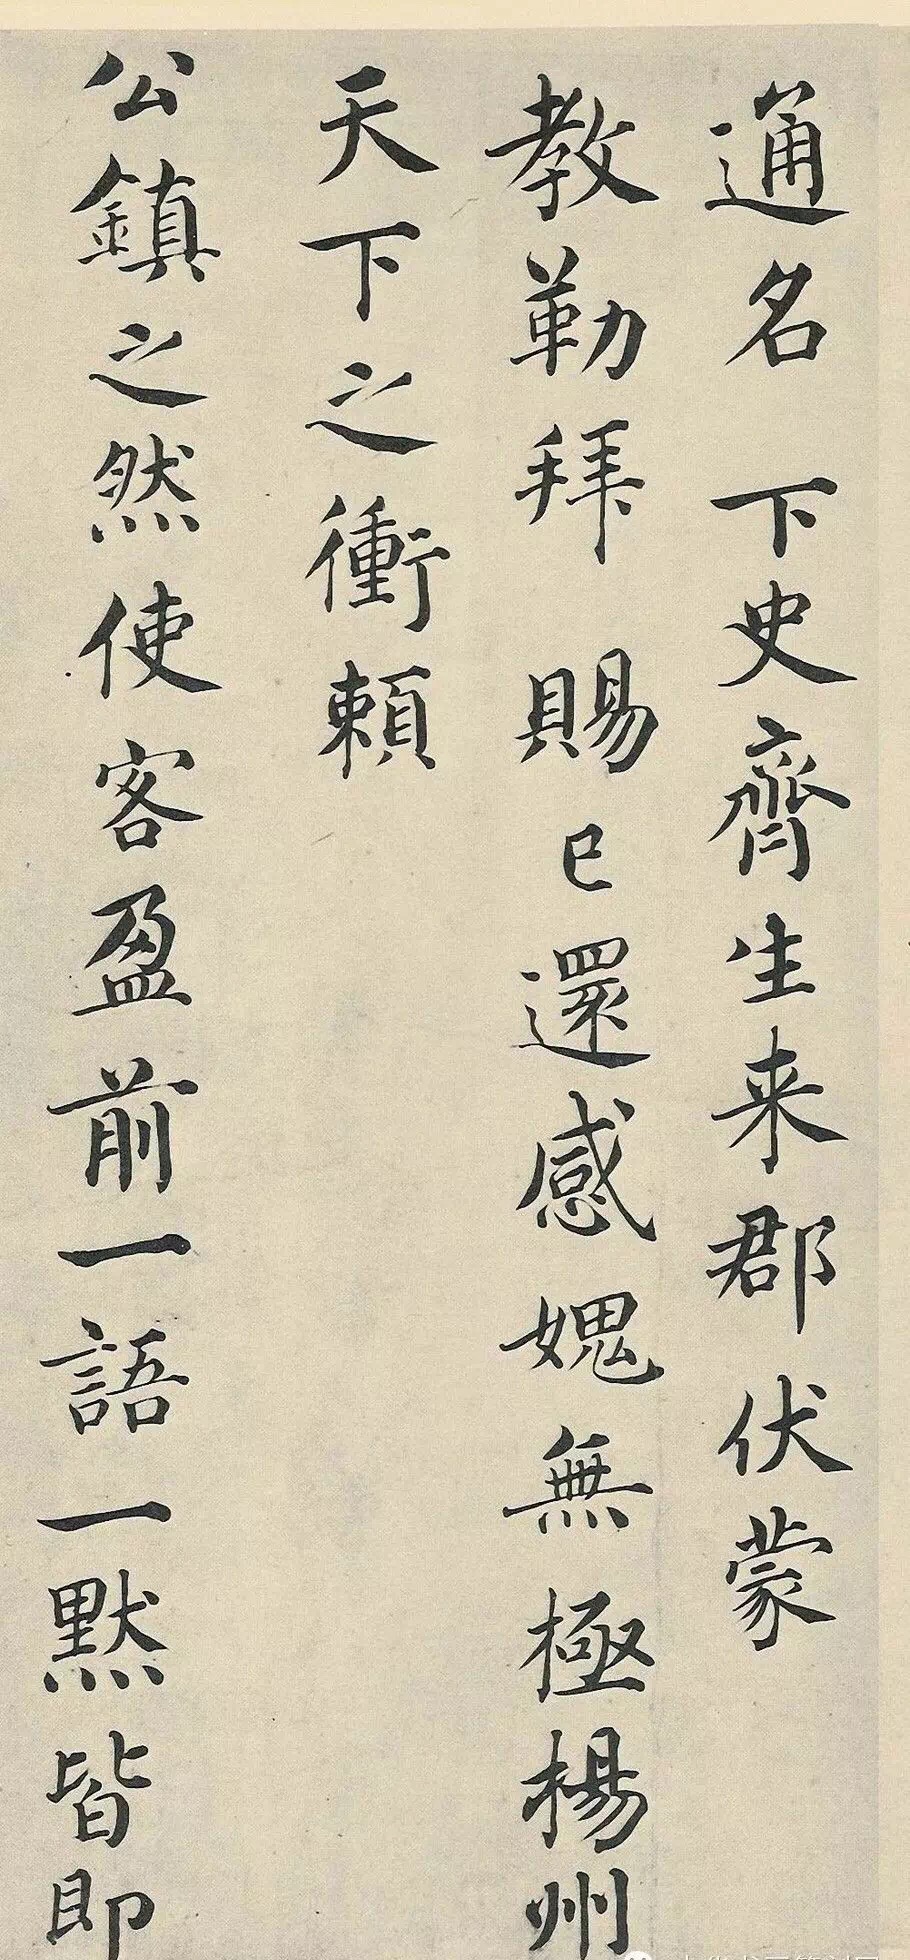 通名下史齊生来郡伏蒙
教勒拜賜已還感媿無極楊州
天下之衝賴
公鎮之然使客盈前一語一默皆即